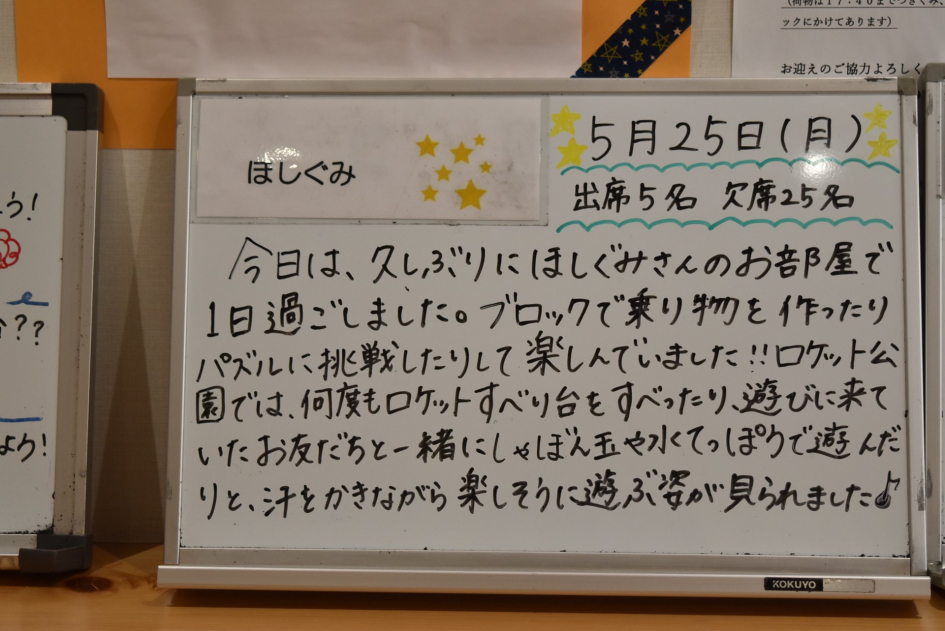 (荷物は17:40までつきぐみ、
ックにかけてあります)
お迎えのご協力よろしく
ほしぐみ
5月25日(月)
出席5名 欠席25名
今日は、久しぶりにほしぐみさんのお部屋で
1日過ごしました。ブロックで乗り物を作ったり
パズルに挑戦したりして楽しんでいました!!ロケット公
園では、何度もロケットすべり台をすべったり、遊びに来て
いたお友だちと一緒にしゃぼん玉や水てっぽうで遊んだ
りと、汗をかきながら楽しそうに遊ぶ姿が見られました♪
KOKUYO
う!
??
よう!